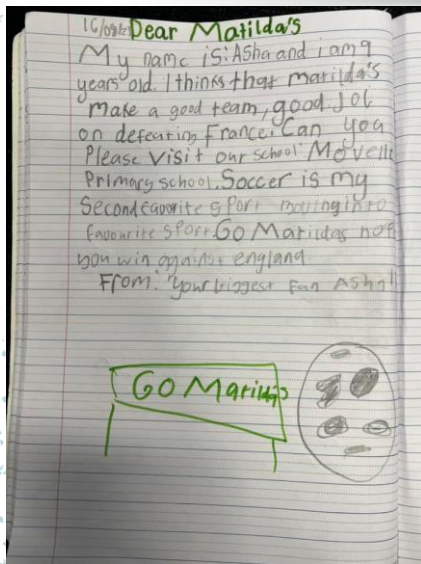 16/08/23 Dear Matilda's
My name is: Asha and i am 9
years old. I thinks that matilda's
make a good team, good Job
on defeating France. Can you
Please visit our school: Movelle
Primary school. Soccer is my
Second favorite sport moving into
favourite sport. Go Matildas hop
you win against england.
From: "your biggest fan Asha"
GO Marilda's